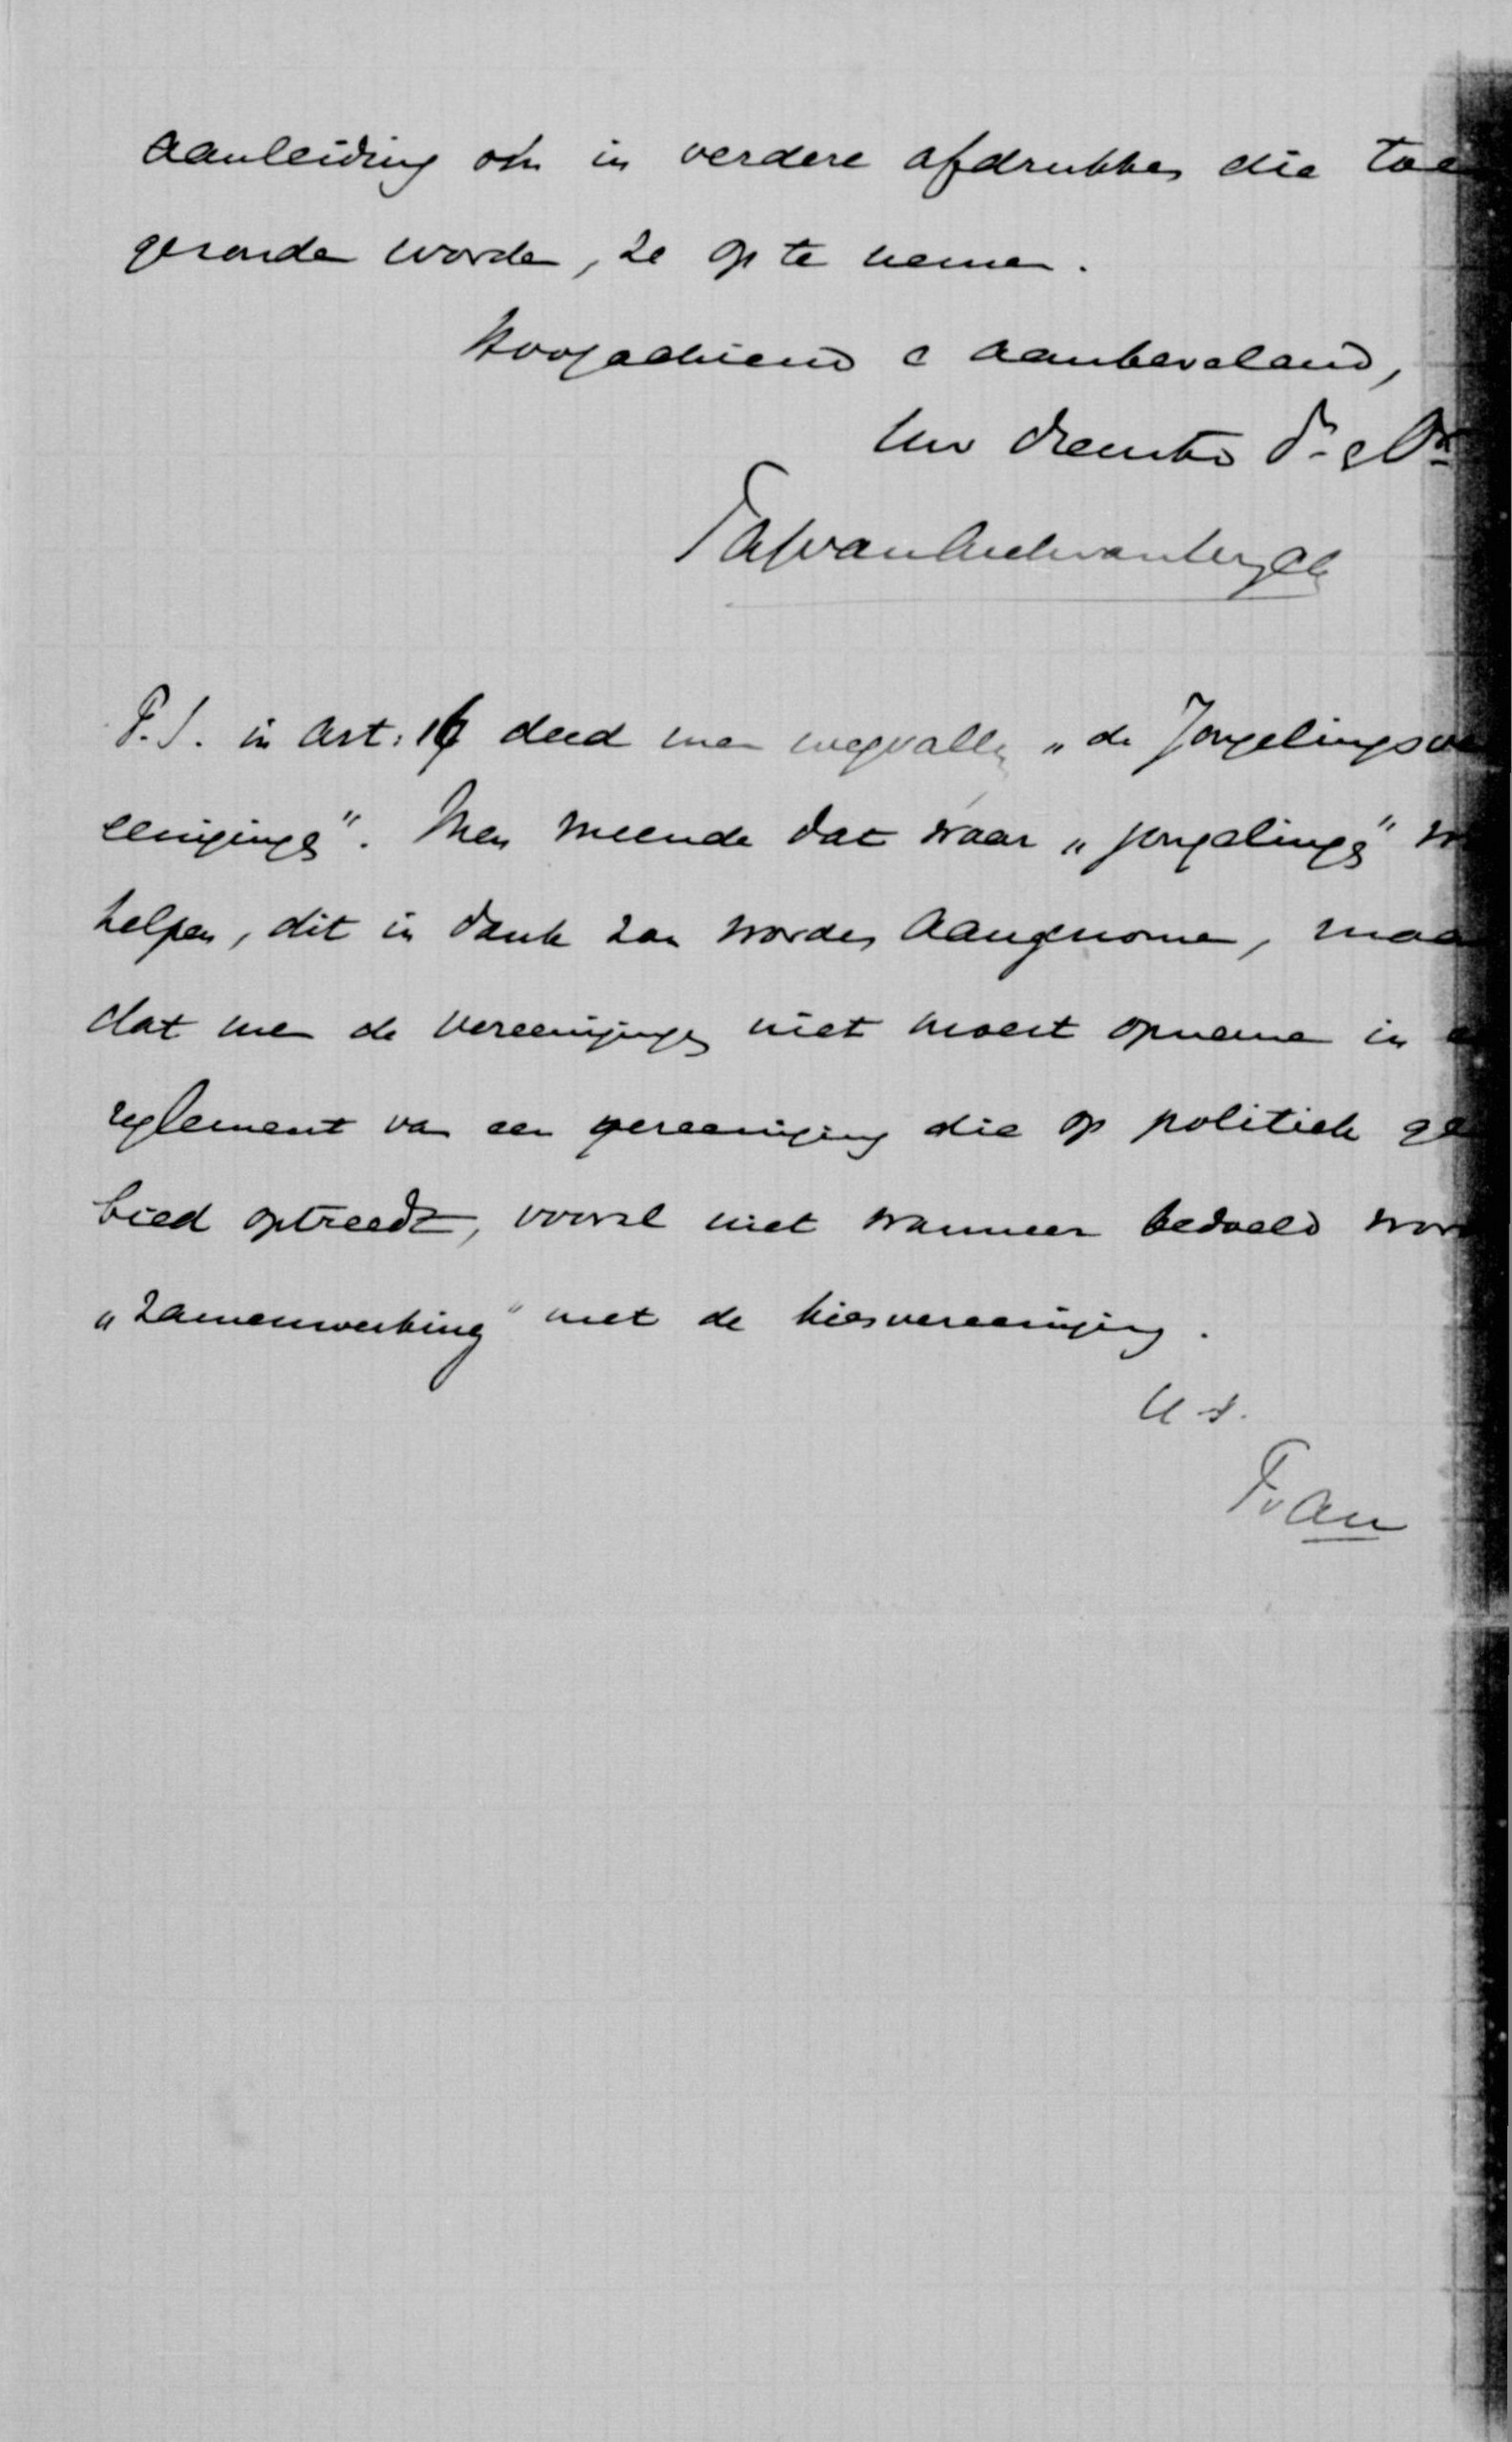 aanleiding om in verdere afdrukken die toe
gezonden worden, ze op te nemen.
Hoogachtend & aanbevelend,
Uw dienstw.
P.S. in Art: 16 deed men wegvallen „de Jongelingsve
eenigingen". Men meende dat waar „jongelingen" w
helpen, dit in dank zou worden aangenomen, maa
dat men de vereenigingen niet moest opnemen in
reglement van een vereeniging die op politiek ge
bied optreedt, vooral niet wanneer bedoeld wor
„zamenwerking" met de kiesvereeniging.